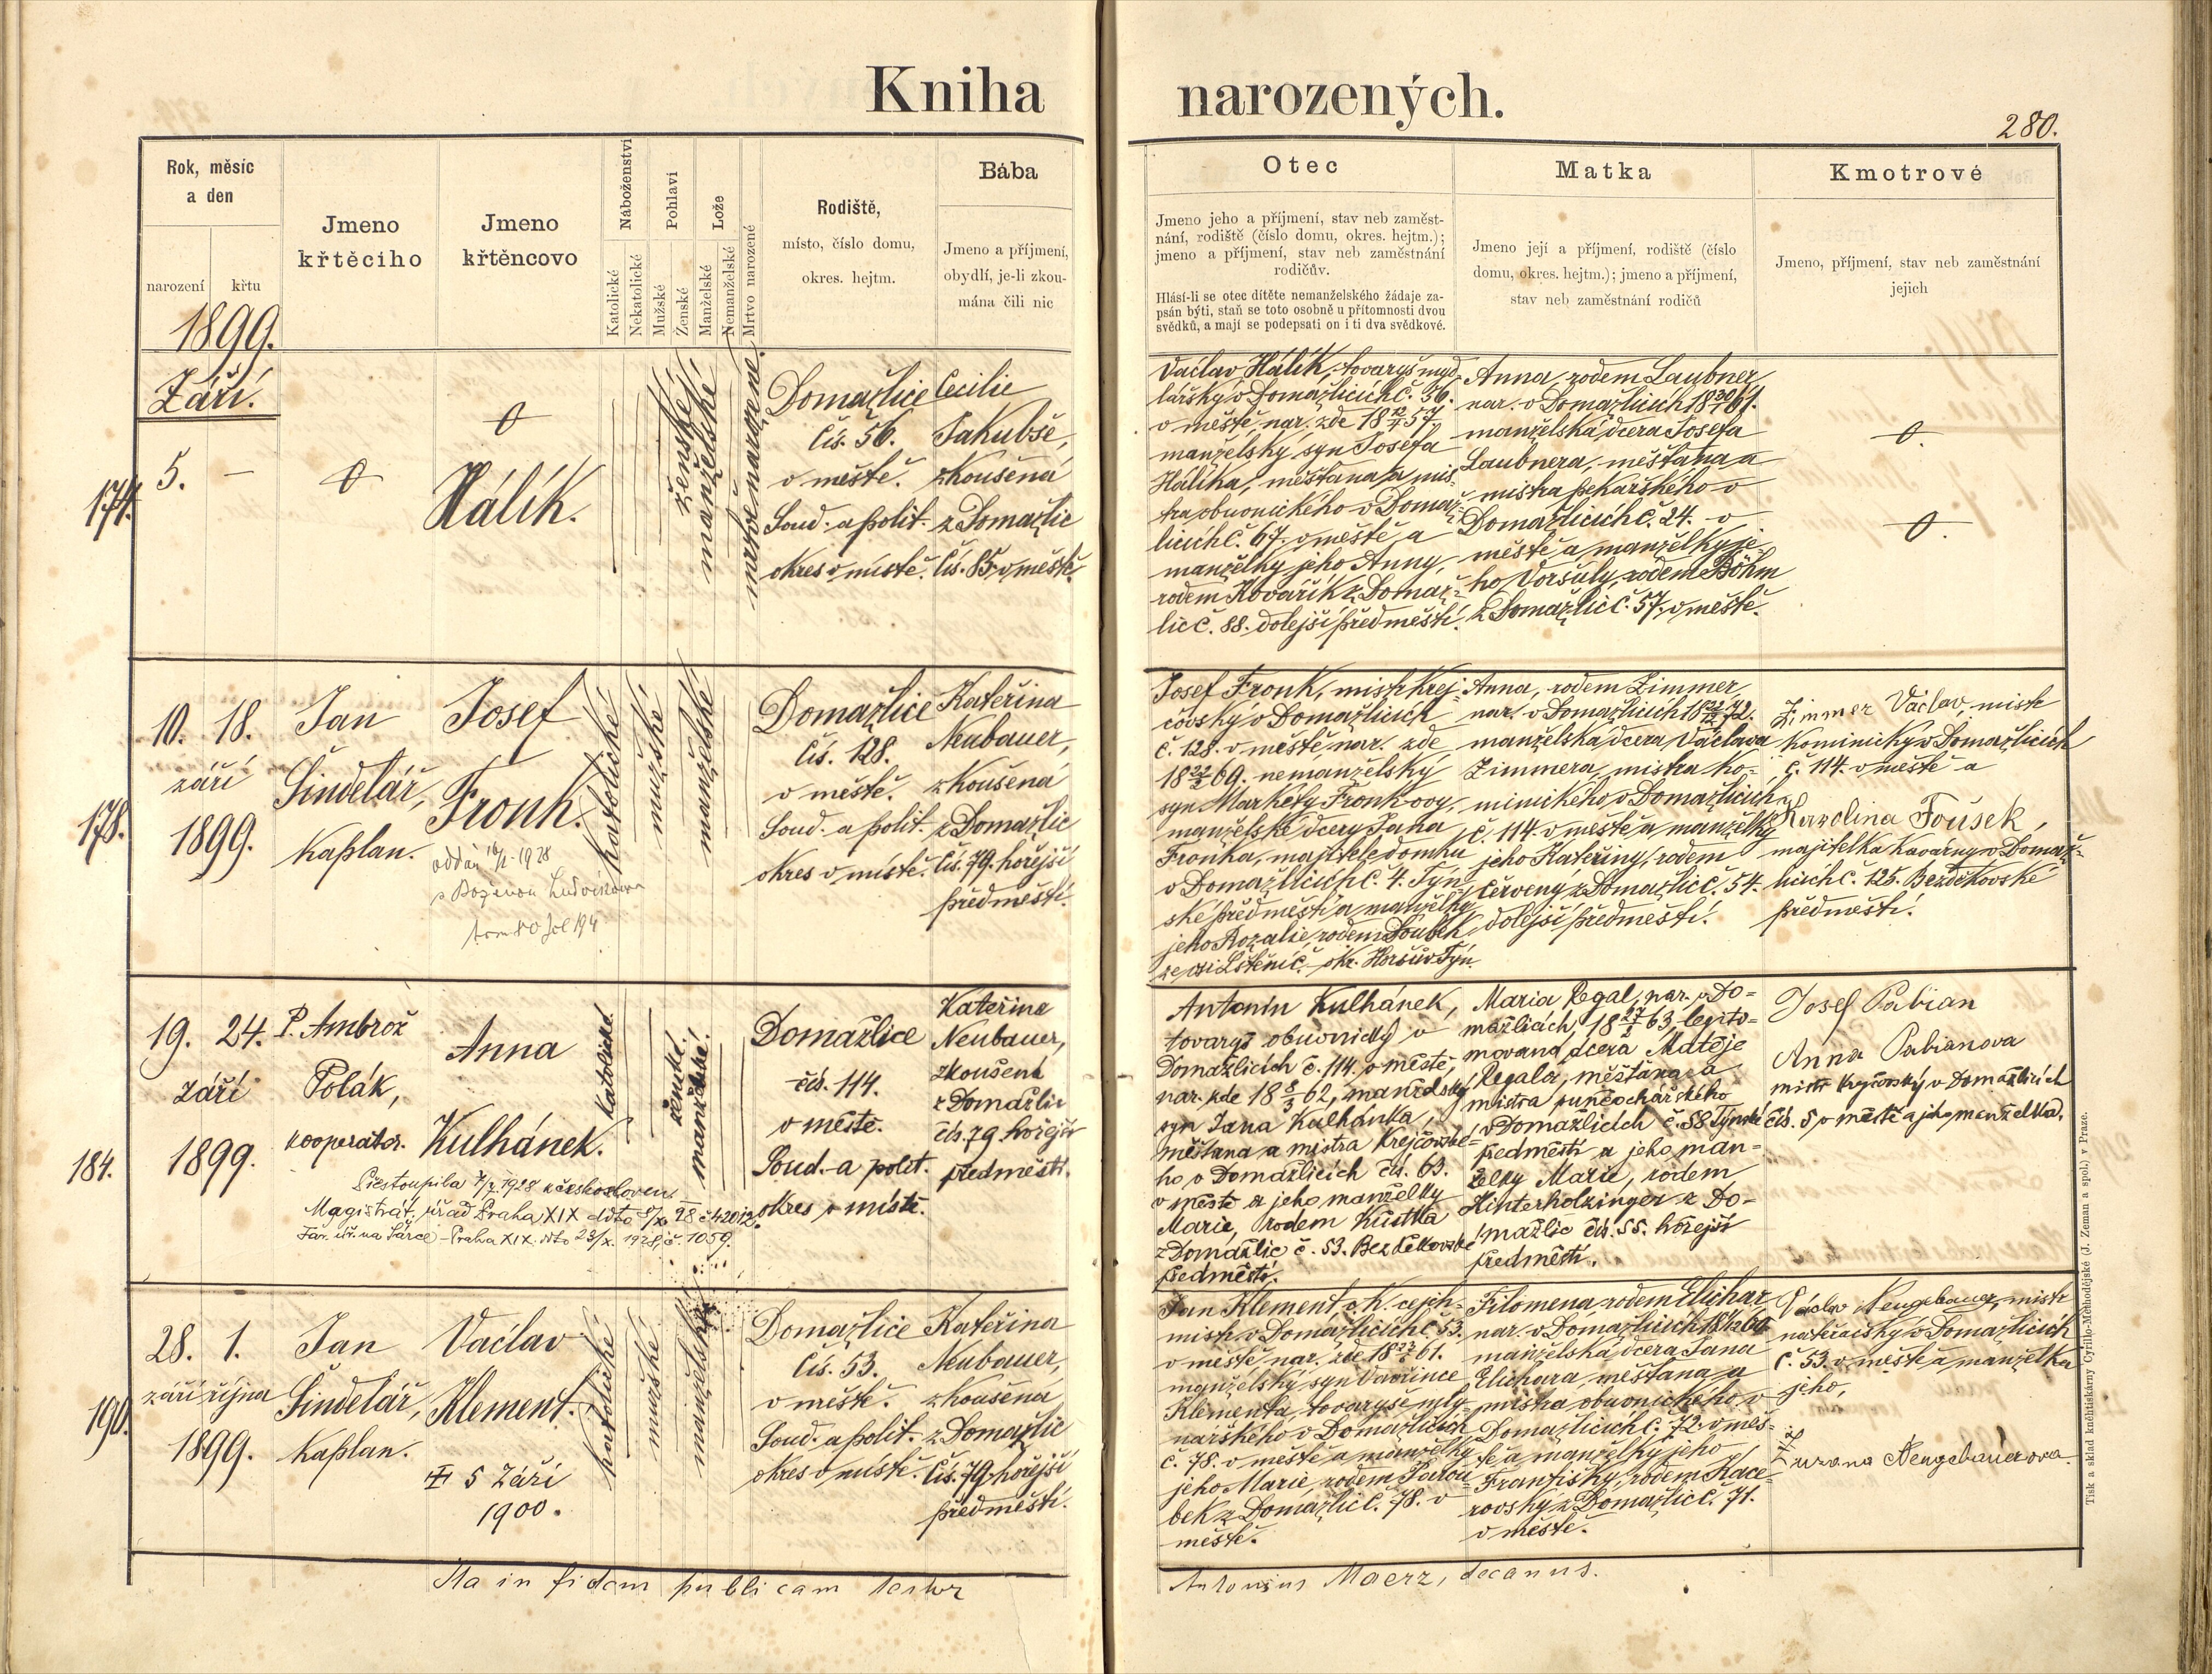 Kniha narozených.
280.
Rok, měsíc
a den
narození
křtu
1899.
Jmeno
křtěciho
Jmeno
křtěncovo
Náboženství
Katolické
Nekatolické
Pohlaví
Mužské
Ženské
Lože
Manželské
Nemanželské
Mrtvo narozené
Rodiště,
místo, číslo domu,
okres. hejtm.
Bába
Jmeno a příjmení,
obydlí, je-li zkou-
mána čili nic
Otec
Jmeno jeho a příjmení, stav neb zaměst-
nání, rodiště (číslo domu, okres. hejtm.);
jmeno a příjmení, stav neb zaměstnání
rodičův.
Hlásí-li se otec dítěte nemanželského žádaje za-
psán býti, staň se toto osobně u přítomnosti dvou
svědků, a mají se podepsati on i ti dva svědkové.
Matka
Jmeno její a příjmení, rodiště (číslo
domu, okres. hejtm.); jmeno a příjmení,
stav neb zaměstnání rodičů
Kmotrové
Jmeno, příjmení, stav neb zaměstnání
jejich
Září.
174.
5. —
Hálík.
ženské
manželské
mrtvě narozené.
Domažlice
čís. 56.
v městě.
Soud. a polit.
okres v místě.
Cecilie
Jakubše,
zkoušená
z Domažlic
čís. 85 v městě.
Václav Hálík, tovaryš myd-
lářský v Domažlicích č. 56.
v městě, nar. zde 18 12/7 57,
manželský syn Josefa
Hálíka, měšťana a mis-
tra obuvnického v Domaž-
licích č. 67. v městě a
manželky jeho Anny,
rodem Kovářík z Domaž-
lic č. 88. dolejší předměstí.
Anna, rodem Laubner,
nar. v Domažlicích 18 30/1 61.
manželská dcera Josefa
Laubnera, měšťana a
mistra pekařského v
Domažlicích č. 24. v
městě a manželky je-
ho Voršuly, rodem Böhm
z Domažlic č. 57. v městě.
178.
10. 18.
září
1899.
Jan
Šindelář,
kaplan.
Josef
Fronk.
oddán 16/1 1928
s Boženou Ludvíkovou
katolické
mužské
manželské
Domažlice
čís. 128.
v městě.
Soud. a polit.
okres v místě.
Kateřina
Neubauer,
zkoušená
z Domažlic
čís. 79. hořejší
předměstí.
Josef Fronk, mistr krej-
čovský v Domažlicích
č. 128. v městě, nar. zde
18 22/2 69. nemanželský
syn Markéty Fronkovy,
manželské dcery Jana
Fronka, majitele domku
v Domažlicích č. 4. Týn-
ské předměstí a manželky
jeho Rozalie, rodem Soubek
ze vsi Lštění č. okr. Horšův Týn.
Anna, rodem Zimmer,
nar. v Domažlicích 18 22/12 72.
manželská dcera Václava
Zimmera, mistra ko-
minického v Domažlicích
č. 114. v městě a manželky
jeho Kateřiny, rodem
Červený z Domažlic č. 54.
dolejší předměstí.
Zimmer Václav, mistr
kominický v Domažlicích
č. 114. v městě a
Karolina Foúsek,
majitelka kavárny v Domaž-
licích č. 125. Bezděkovské
předměstí.
184.
19. 24.
září
1899.
P. Ambrož
Polák,
kooperátor.
Anna
Kulhánek.
Přestoupila 7/9. 1928 k českosloven.
Magistrát. úřad Praha XIX ddto 5/X. 28 č 42012.
Far. úř. na Sářce - Praha XIX. dto 23/X. 1928, č. 1059.
katolické
ženské.
manželské.
Domažlice
čís. 114.
v městě.
Soud. a polit.
okres v místě.
Kateřina
Neubauer,
zkoušena
z Domažlic
čís. 79 hořejší
předměstí.
Antonín Kulhánek,
tovaryš obuvnický v
Domažlicích č. 114. v městě,
nar. zde 18 8/3 62, manželský
syn Jana Kulhánka,
měšťana a mistra krejčovské-
ho v Domažlicích čís. 63.
v městě a jeho manželky
Marie, rodem Kustka
z Domažlic č. 53. Bezděkovské
předměstí.
Maria Regal, nar. v Do-
mažlicích, 18 27/2 63, legito-
movaná dcera Matěje
Regala, měšťana a
mistra punčochářského
v Domažlicích č. 58 Týnské
předměstí a jeho man-
želky Marie, rodem
Hinterholzinger z Do-
mažlic čís. 55. hořejší
předměstí.
Josef Pabian
Anna Pabianova
mistr krejčovský v Domažlicích
čís. 5 v městě a jeho manželka.
190.
28. 1.
září října
1899.
Jan
Šindelář,
kaplan.
Václav
Klement.
5 Září
1900.
katolické
mužské
manželské
Domažlice
čís. 53.
v městě.
Soud. a polit.
okres v místě.
Kateřina
Neubauer,
zkoušena
z Domažlic
čís. 79. hořejší
předměstí.
Jan Klement, c. k. cejch-
mistr v Domažlicích č. 53.
v městě, nar. zde 18 61.
manželský syn Vavřince
Klementa, tovaryše mly-
nářského v Domažlicích
č. 78. v městě a manželky
jeho Marie, rodem Parou-
bek z Domažlic č. 78. v
městě.
Filomena rodem Elichar
nar. v Domažlicích 18 69
manželská dcera Jana
Elichara, měšťana a
mistra obuvnického v
Domažlicích č. 72. v měs-
tě a manželky jeho
Františky, rodem Kace-
rovský z Domažlic č. 71.
v městě.
Václav Neugebauer, mistr
natěračský v Domažlicích
č. 53. v městě a manželka
jeho,
Zuzana Neugebauerova
Ita in fidem publicam testor
Antonius Maerz, decanus.
Tisk a sklad knihtiskárny Cyrillo-Methodějské (J. Zeman a spol.) v Praze.